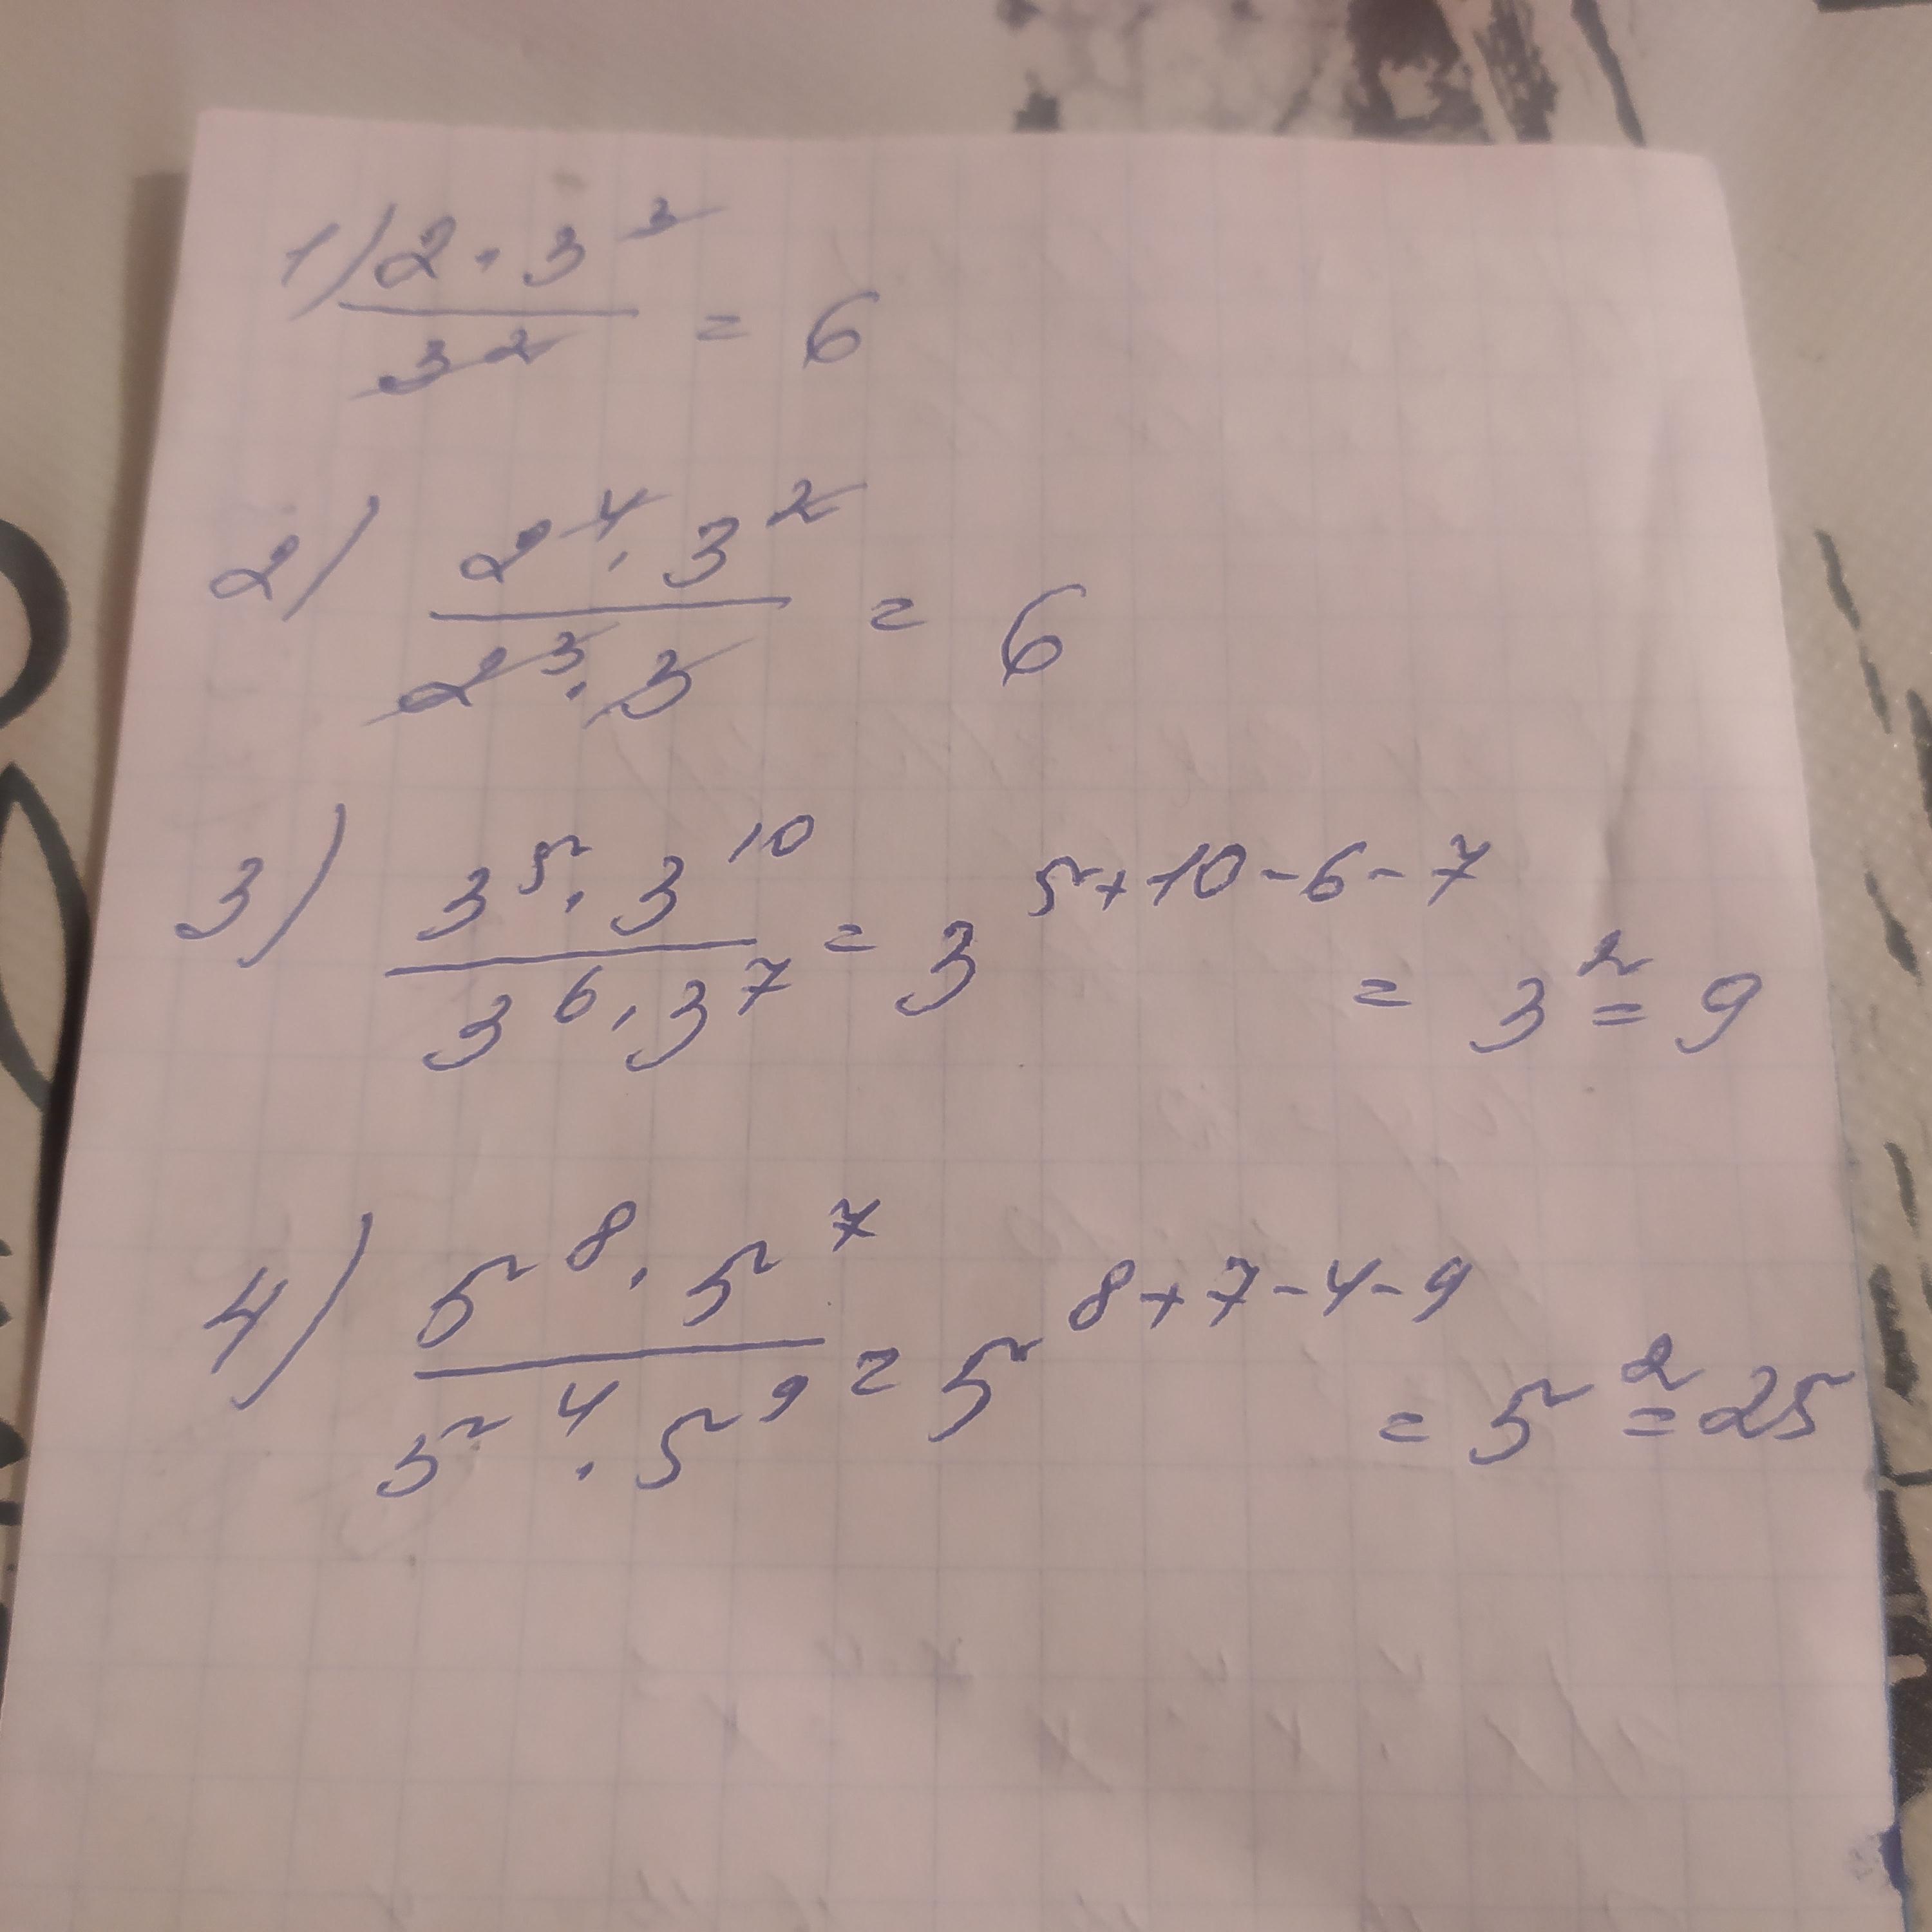 1) 2 · 3³
3²
= 6
2) 2⁴ · 3²
2³ · 3
= 6
3) 3⁵ · 3¹⁰
3⁶ · 3⁷
= 3⁵⁺¹⁰⁻⁶⁻⁷
= 3² = 9
4) 5⁸ · 5⁷
5⁴ · 5⁹
= 5⁸⁺⁷⁻⁴⁻⁹
= 5² = 25